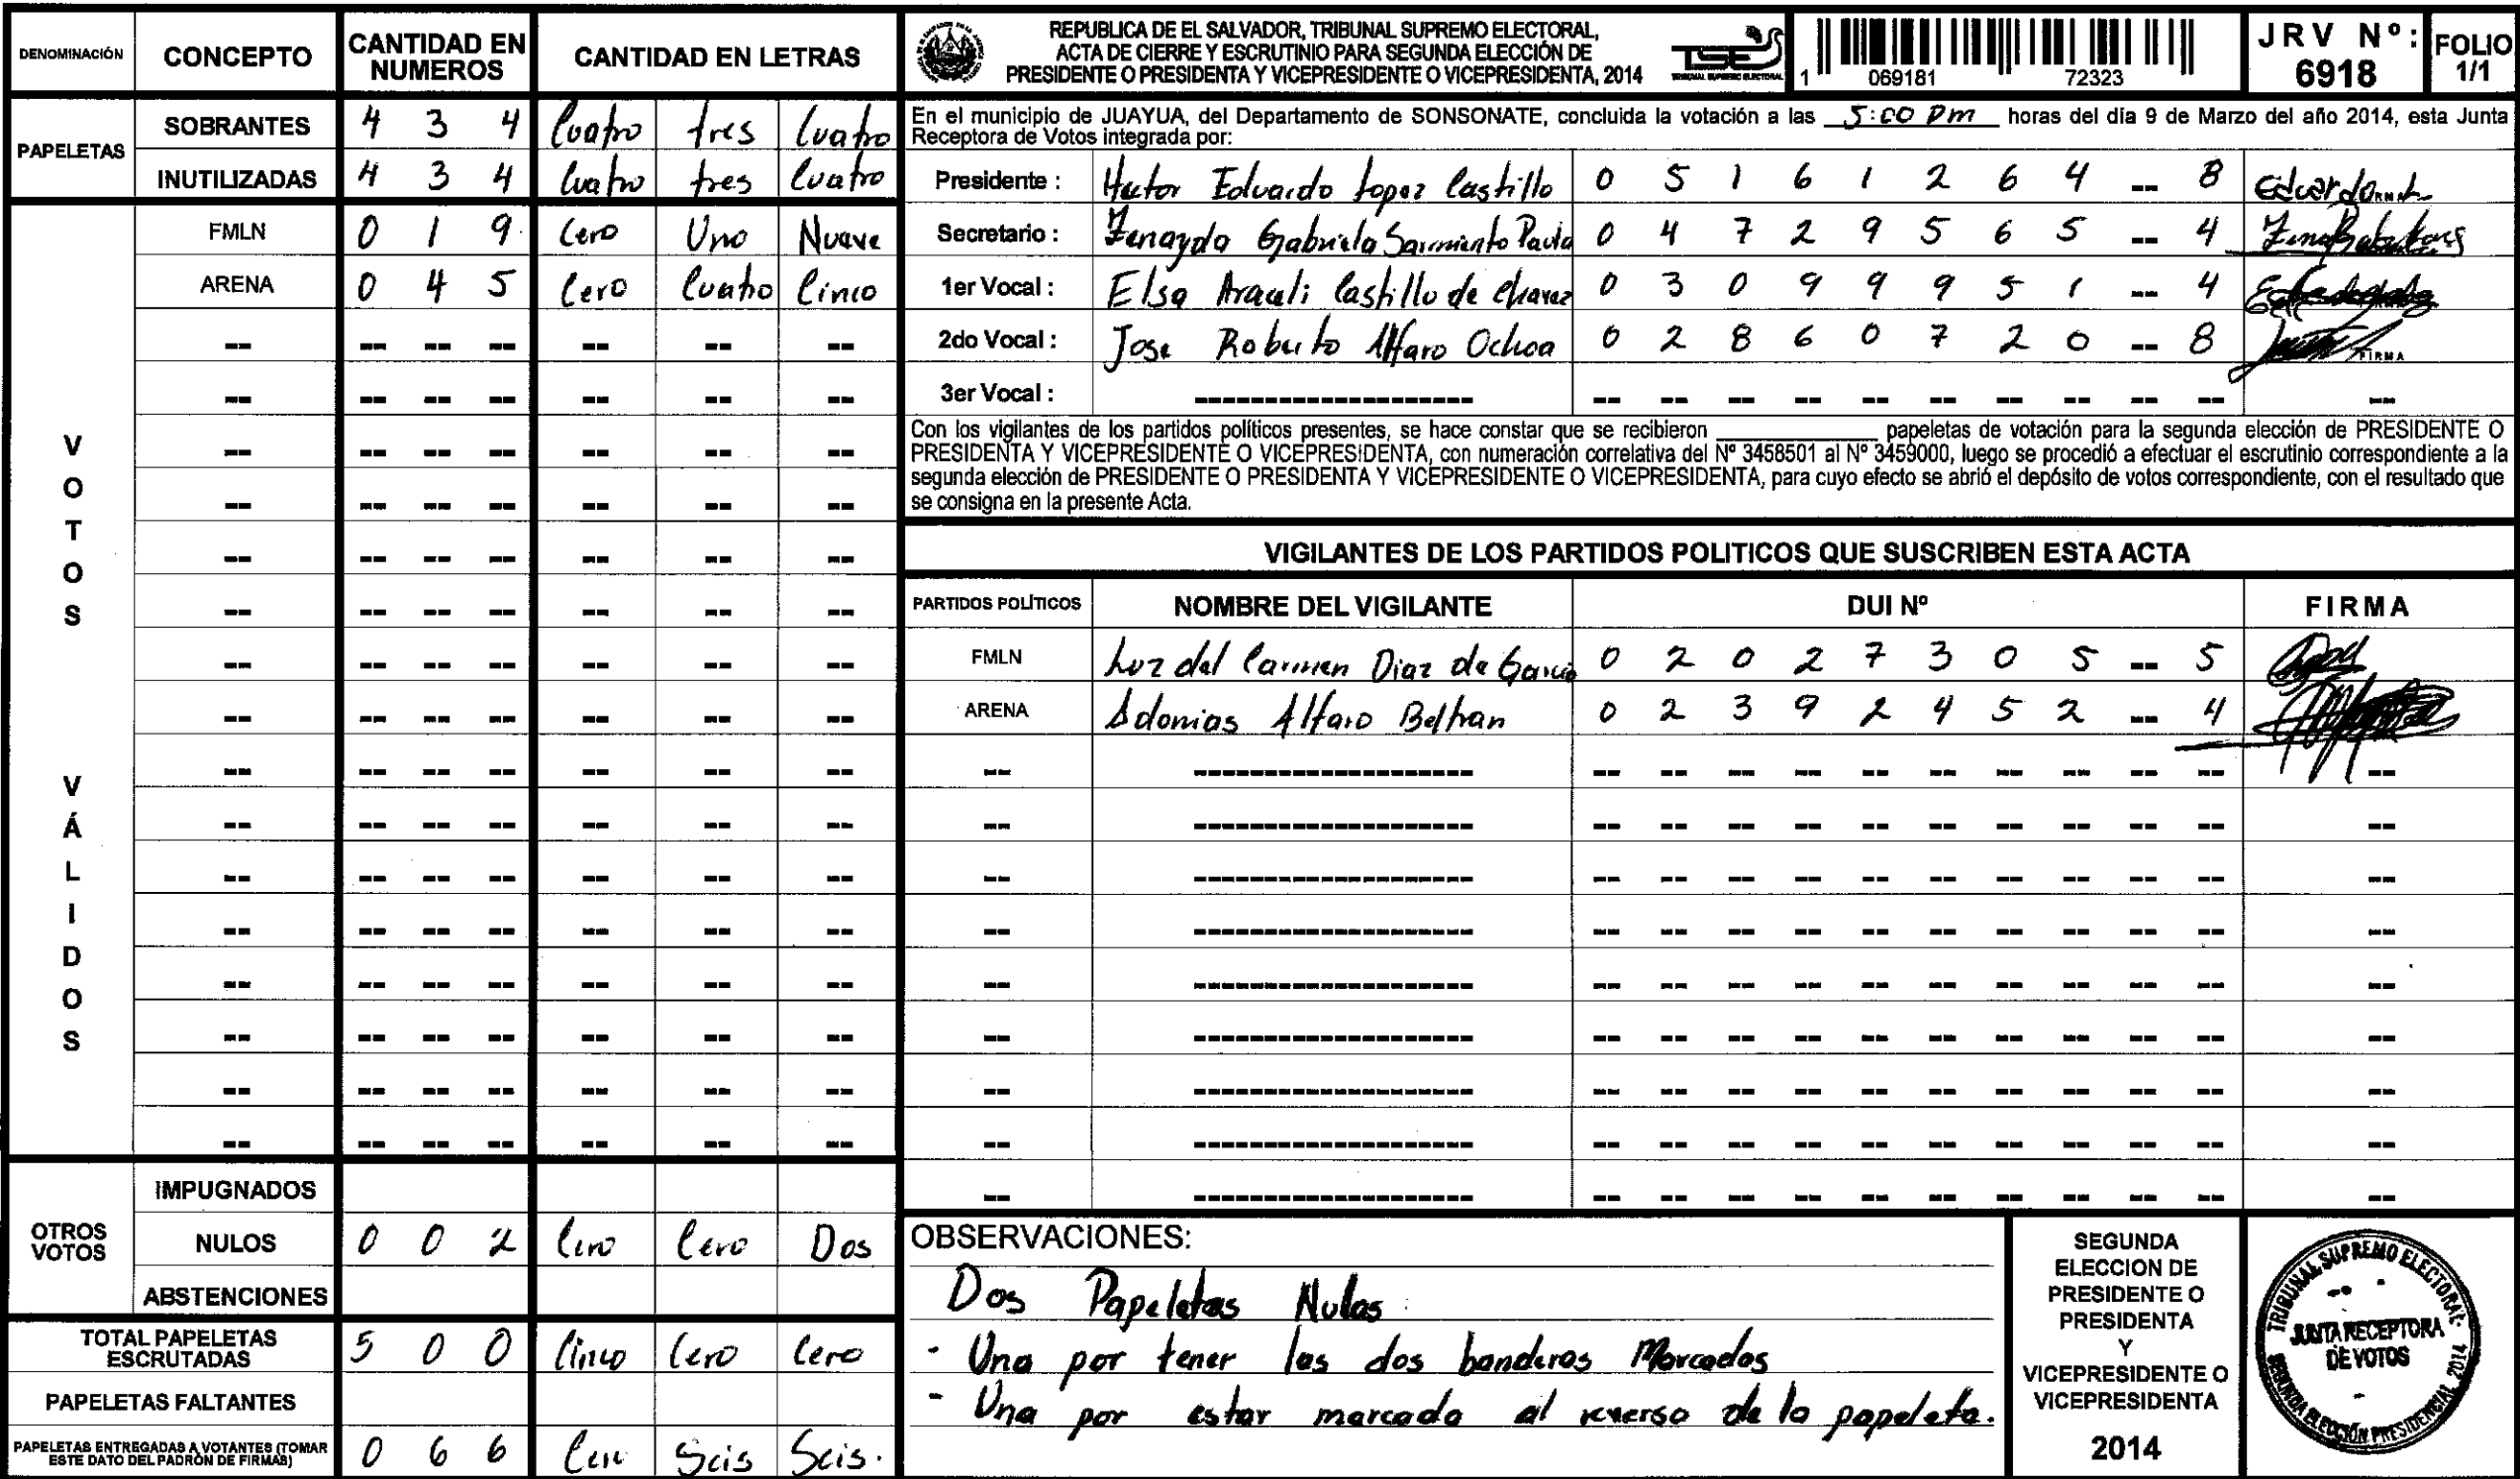 DENOMINACIÓN CONCEPTO CANTIDAD EN NUMEROS CANTIDAD EN LETRAS
PAPELETAS
SOBRANTES 4 3 4 Cuatro tres Cuatro
INUTILIZADAS 4 3 4 Cuatro tres Cuatro
VOTOS VÁLIDOS
FMLN 0 1 9 Cero Uno Nueve
ARENA 0 4 5 Cero Cuatro Cinco
OTROS VOTOS
IMPUGNADOS
NULOS 0 0 2 Cero Cero Dos
ABSTENCIONES
TOTAL PAPELETAS ESCRUTADAS 5 0 0 Cinco Cero Cero
PAPELETAS FALTANTES
PAPELETAS ENTREGADAS A VOTANTES (TOMAR ESTE DATO DEL PADRÓN DE FIRMAS) 0 6 6 Cero Seis Seis.
REPUBLICA DE EL SALVADOR, TRIBUNAL SUPREMO ELECTORAL,
ACTA DE CIERRE Y ESCRUTINIO PARA SEGUNDA ELECCIÓN DE
PRESIDENTE O PRESIDENTA Y VICEPRESIDENTE O VICEPRESIDENTA, 2014
TSE
TRIBUNAL SUPREMO ELECTORAL
1 069181 72323
JRV Nº: 6918
FOLIO 1/1
En el municipio de JUAYUA, del Departamento de SONSONATE, concluida la votación a las 5:00 Pm horas del día 9 de Marzo del año 2014, esta Junta
Receptora de Votos integrada por:
Presidente : Hector Eduardo Lopez Castillo 0 5 1 6 1 2 6 4 -- 8
Secretario : Zenayda Gabriela Sarmiento 0 4 7 2 9 5 6 5 -- 4
1er Vocal : Elsa Araceli Castillo de Chavez 0 3 0 9 9 9 5 1 -- 4
2do Vocal : Jose Roberto Alfaro Ochoa 0 2 8 6 0 7 2 0 -- 8 FIRMA
3er Vocal :
Con los vigilantes de los partidos políticos presentes, se hace constar que se recibieron ____ papeletas de votación para la segunda elección de PRESIDENTE O
PRESIDENTA Y VICEPRESIDENTE O VICEPRESIDENTA, con numeración correlativa del Nº 3458501 al Nº 3459000, luego se procedió a efectuar el escrutinio correspondiente a la
segunda elección de PRESIDENTE O PRESIDENTA Y VICEPRESIDENTE O VICEPRESIDENTA, para cuyo efecto se abrió el depósito de votos correspondiente, con el resultado que
se consigna en la presente Acta.
VIGILANTES DE LOS PARTIDOS POLITICOS QUE SUSCRIBEN ESTA ACTA
PARTIDOS POLÍTICOS NOMBRE DEL VIGILANTE DUI Nº FIRMA
FMLN Luz del Carmen Diaz de Garcia 0 2 0 2 7 3 0 5 -- 5
ARENA Adonias Alfaro Beltran 0 2 3 9 2 4 5 2 -- 4
OBSERVACIONES:
Dos Papeletas Nulas
- Una por tener las dos banderas Marcadas
- Una por estar marcada al reverso de la papeleta.
SEGUNDA
ELECCION DE
PRESIDENTE O
PRESIDENTA
Y
VICEPRESIDENTE O
VICEPRESIDENTA
2014
TRIBUNAL SUPREMO ELECTORAL
JUNTA RECEPTORA
DE VOTOS
SEGUNDA ELECCIÓN PRESIDENCIAL 2014